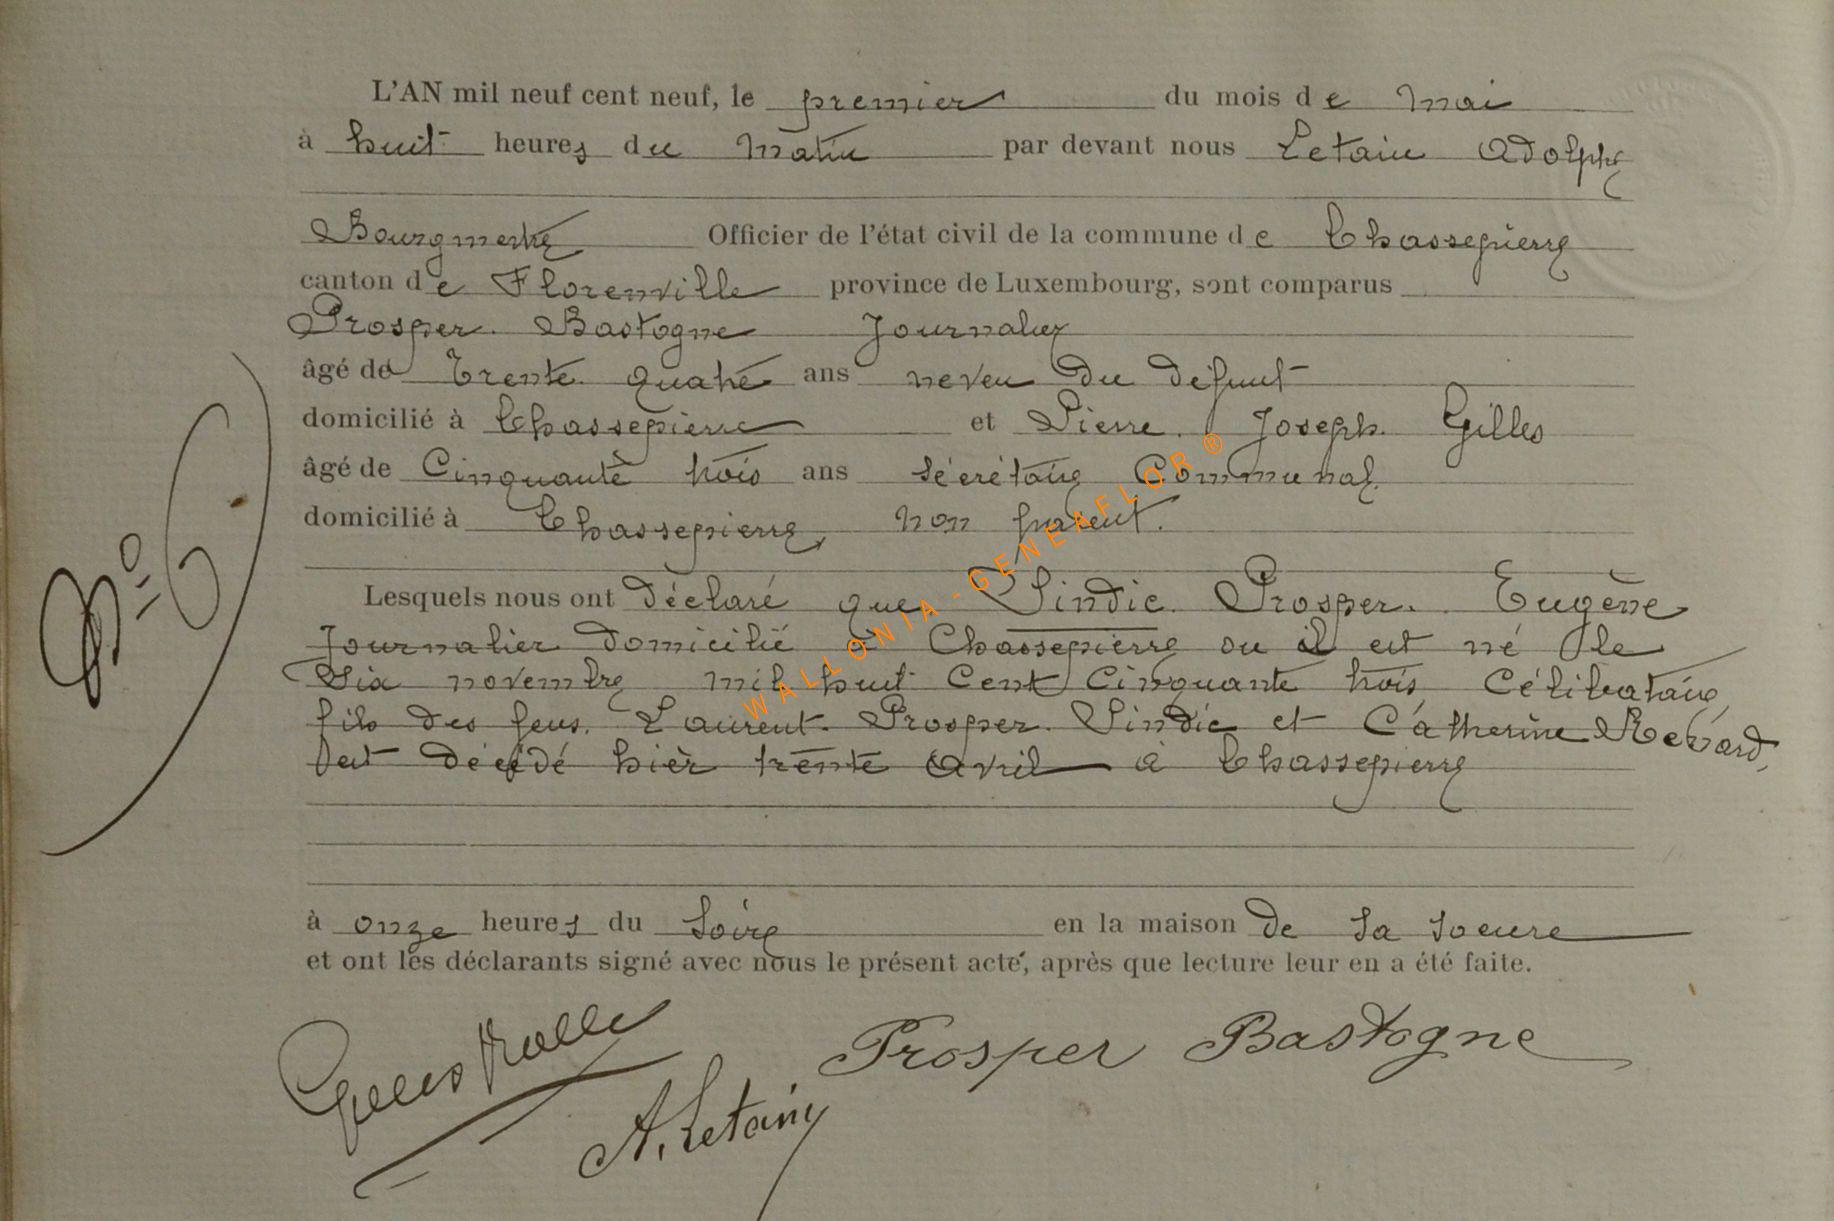 L'AN mil neuf cent neuf, le premier du mois de Mai
à huit heures du Matin par devant nous Letain Adolphe
Bourgmestre Officier de l'état civil de la commune de Chassepierre
canton de Florenville province de Luxembourg, sont comparus
Prosper Bastogne Journalier
âgé de Trente quatre ans neveu du défunt
domicilié à Chassepierre et Pierre Joseph Gilles
âgé de Cinquante trois ans sécrétaire Communal
domicilié à Chassepierre, non parent.
Lesquels nous ont déclaré que Sindic Prosper Eugène
Journalier domicilié à Chassepierre ou il est né le
Six novembre mil huit Cent Cinquante trois Célibataire,
fils des feus Laurent Prosper Sindic et Catherine Renard,
Est décédé hier trente Avril à Chassepierre
à onze heures du Soir en la maison de Sa Soeure
et ont les déclarants signé avec nous le présent acte, après que lecture leur en a été faite.
Prosper Bastogne
A. Letain
N° 6
WALLONIA-GENEAFLOR®